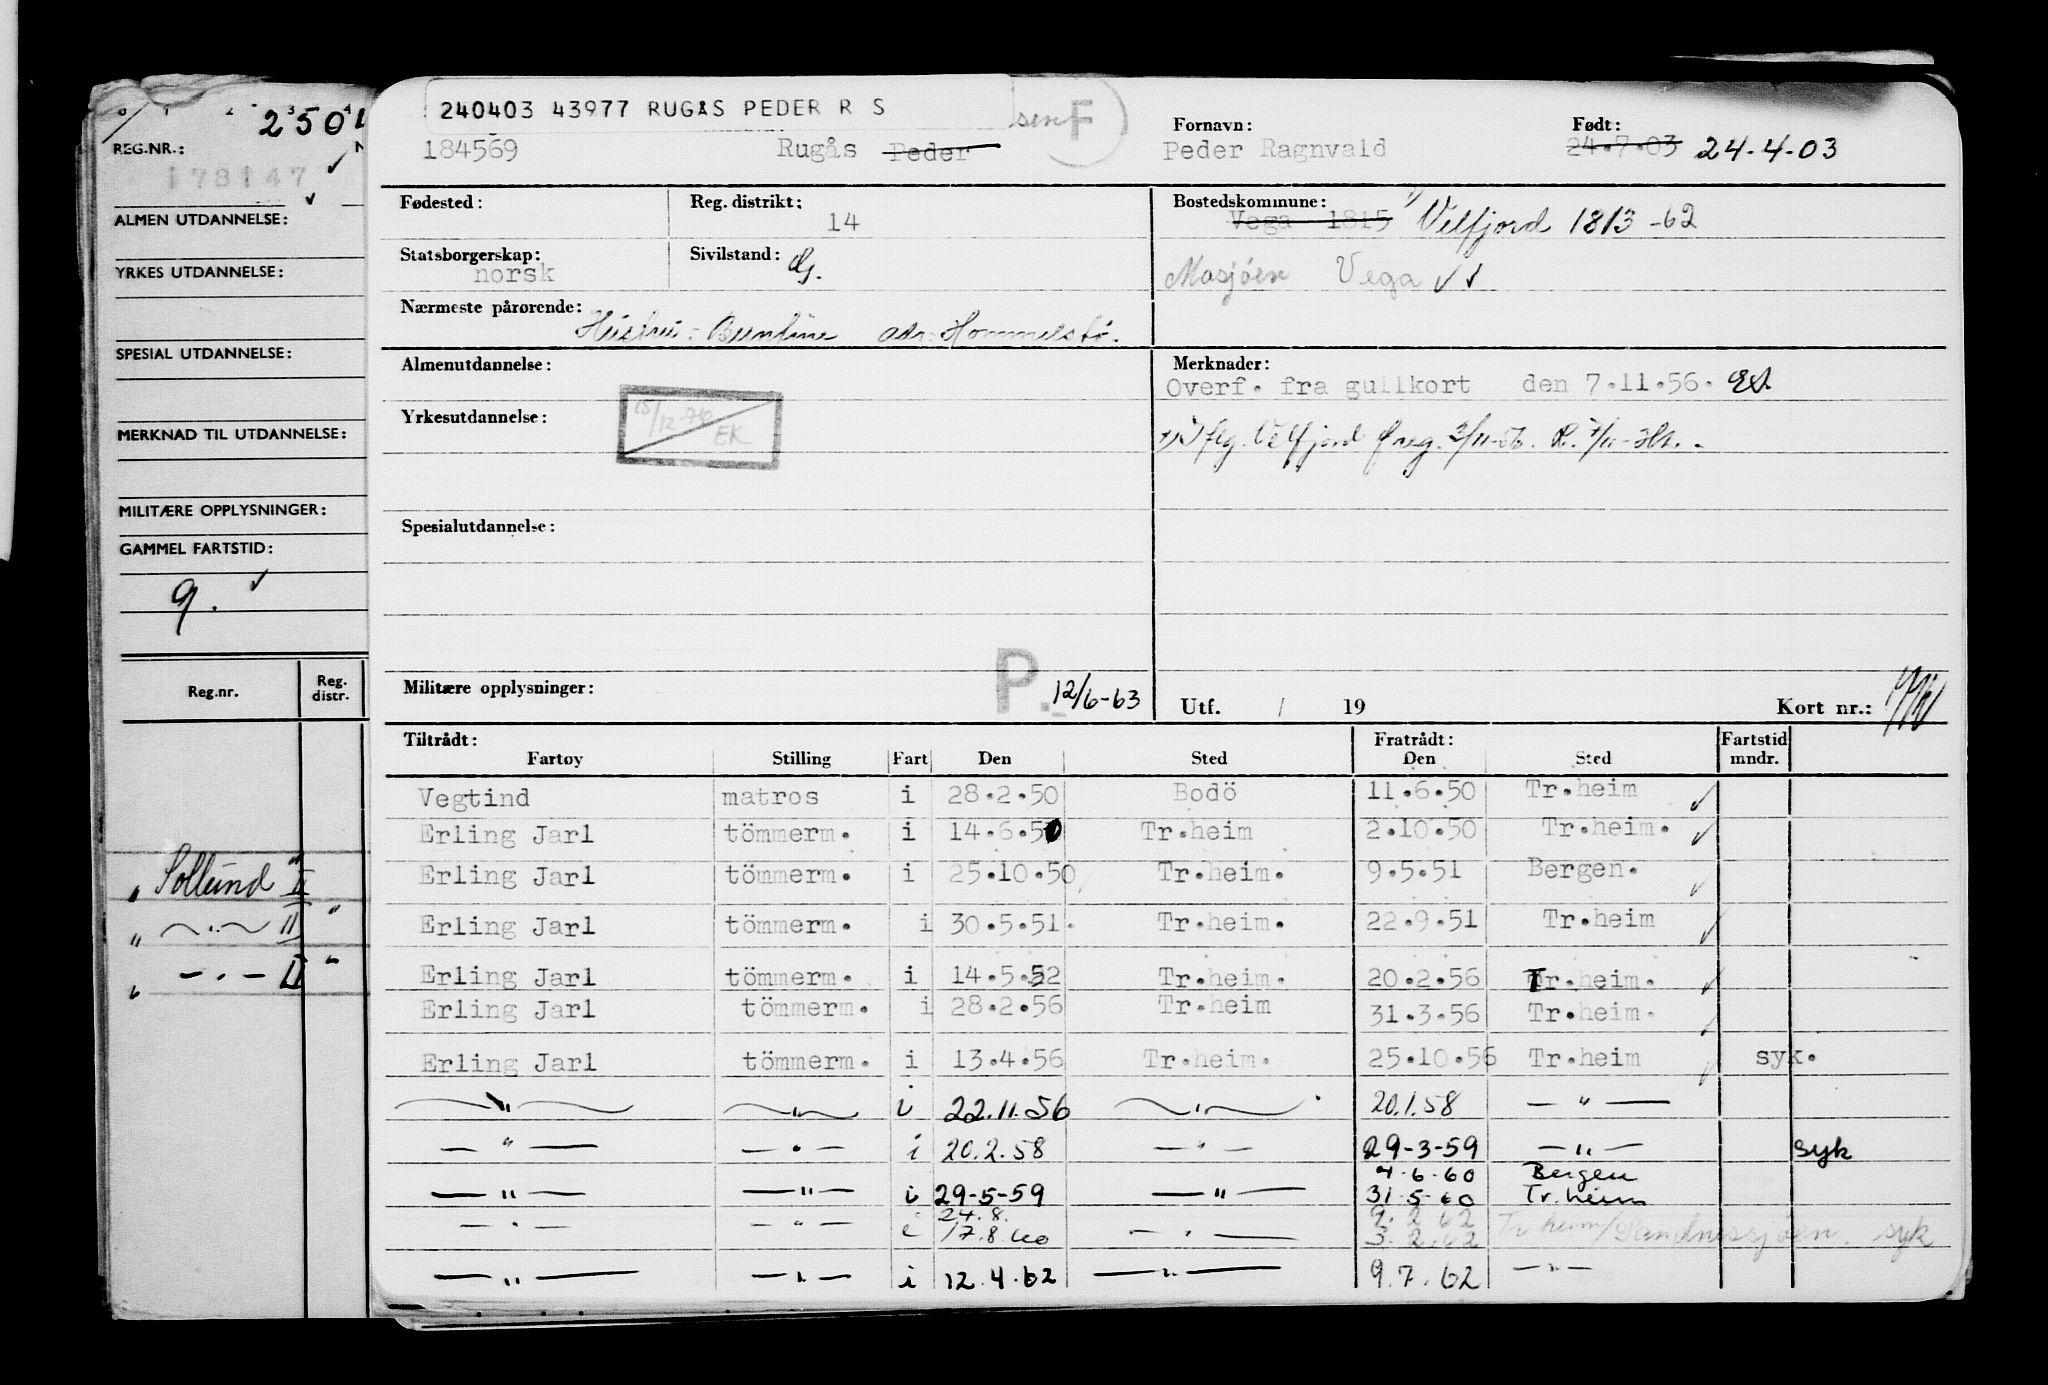 2350
REG.NR.:
178147
ALMEN UTDANNELSE:
YRKES UTDANNELSE:
SPESIAL UTDANNELSE:
MERKNAD TIL UTDANNELSE:
MILITÆRE OPPLYSNINGER:
GAMMEL FARTSTID:
9.
Reg.nr. Reg. distr.
„ Sollund " II
„ —"— II "
„ — . — II "
240403 43977 RUGÅS PEDER R S
sen F
184569 Rugås Peder
Fornavn:
Peder Ragnvald
Født:
24.7.03 24.4.03
Fødested:
Reg. distrikt: 14
Bostedskommune:
Vega 1815 Velfjord 1813 -62
Statsborgerskap:
norsk
Sivilstand: G.
Mosjöen Vega
Nærmeste pårørende:
Hustru: adr: Hommelstö.
Almenutdannelse:
Merknader:
Overf. fra gullkort den 7.11.56.
Yrkesutdannelse:
15/12-76 EK
Velfjord
Spesialutdannelse:
Militære opplysninger: P. 12/6-63
Utf. / 19 Kort nr.:
Tiltrådt: Fratrådt: Fartstid
Fartøy Stilling Fart Den Sted Den Sted mndr.
Vegtind matros i 28.2.50 Bodö 11.6.50 Tr.heim
Erling Jarl tömmerm. i 14.6.50 Tr.heim 2.10.50 Tr.heim.
Erling Jarl tömmerm. i 25.10.50 Tr.heim. 9.5.51 Bergen.
Erling Jarl tömmerm. i 30.5.51. Tr.heim. 22.9.51 Tr.heim
Erling Jarl tömmerm. i 14.5.52 Tr.heim. 20.2.56 Tr.heim.
Erling Jarl tömmerm. i 28.2.56 Tr.heim 31.3.56 Tr.heim.
Erling Jarl tömmerm. i 13.4.56 Tr.heim. 25.10.56 Tr.heim syk.
—"— —"— i 22.11.56 —"— 20.1.58 —"—
—"— —"— i 20.2.58 —"— 29-3-59 —"— syk
4.6.60 Bergen
—"— —"— i 29-5-59 —"— 31.5.60 Tr.heim
24.8. 9.2.62
—"— —"— i 17.8.60 —"— 3.2.62 Tr heim/Sandnessjöen. syk
—"— —"— i 12.4.62 —"— 9.7.62 —"—